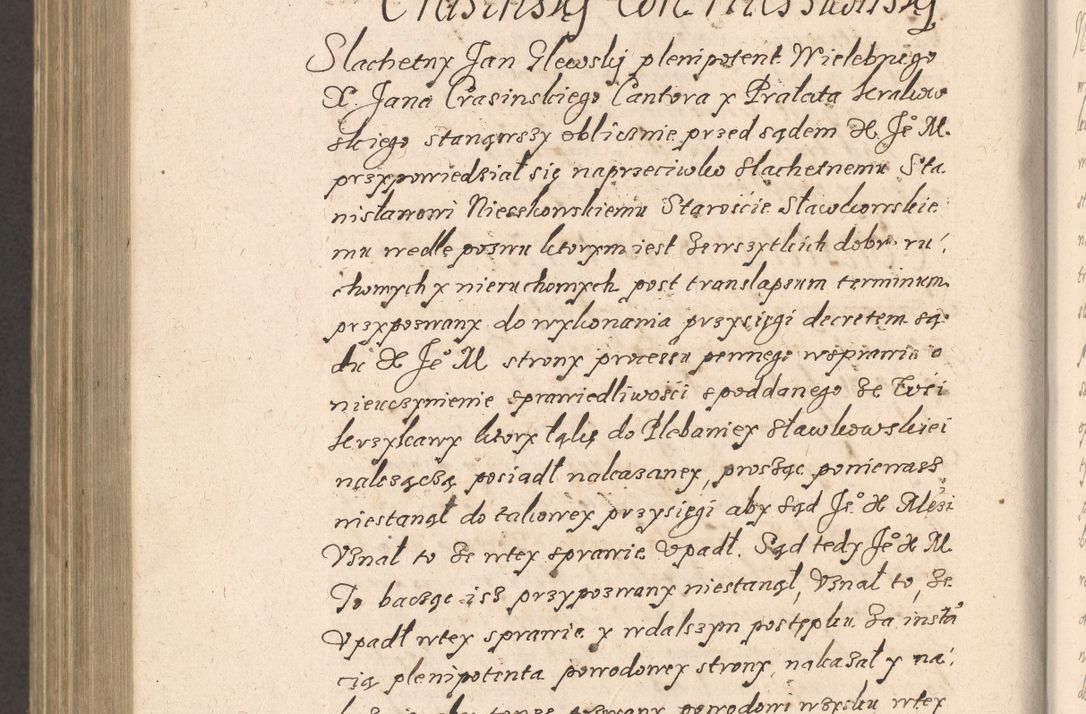 Crasinskÿ Con.
Slachetny Jan Glewskÿ plenipotent Wielebnego
X. Jana Crasinskiego Cantora y Prałata krakow
skiego stanąwszy oblicznie przed sądem X. Je° M.
przypowiedział się naprzeciwko slachetnemu Sta
nisławowi Nieszkowskiemu Staroście Sławkowskie
mu wedle pozwu ktorym iest ze wszytkich dobr ru
chomych y nieruchomych post translapsum terminum
przypozwany do wykonania przysięgi decretem są
du X Je° M strony processu pewnego wsprawie o
nieuczynienie sprawiedliwości spoddanego ze Wsi
krzykawy ktory łąkę do Plebaniey sławkowskiei
nalezączą posiadł nakazaney, prosząc poniewasz
niestanął do takowey przysięgi aby sąd Je° X Mści
Vznał to ze wtey sprawie Vpadł. Sąd tedy Je° X M
To bacząc isz przypozwany niestanął, Vznał to, ze
Vpadł wtey sprawie y wdalszym postępku za insta
cią plenipotenta powodowey strony, nakazał y na
pozwany powodowi wzysku wtey